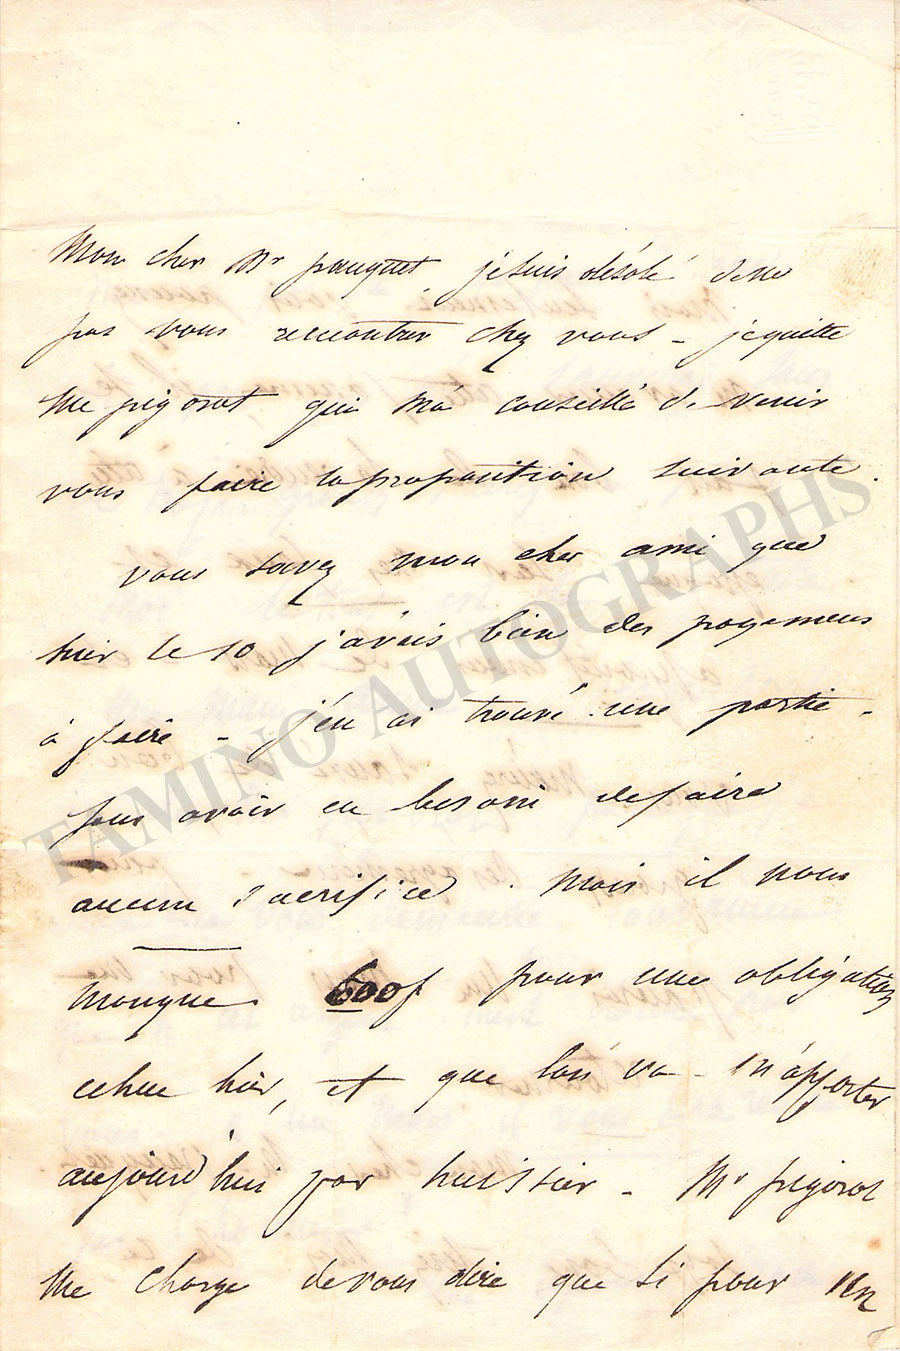 Mon cher Mr pauquet je suis désolé de ne
pas vous rencontrer chez vous – je quitte
Mr pigorot qui m'a conseillé de venir
vous faire la proposition suivante.
vous savez mon cher ami que
hier le 10 j'avais bien des payemens
à faire – j'en ai trouvé une partie –
sans avoir eu besoin de faire
aucun sacrifice. Mais il nous
manque 600f pour une obligation
échue hier, et que l'on va m'apporter
aujourd'hui par huissier – Mr pigorot
me charge de vous dire que si pour un
TAMINO AUTOGRAPHS